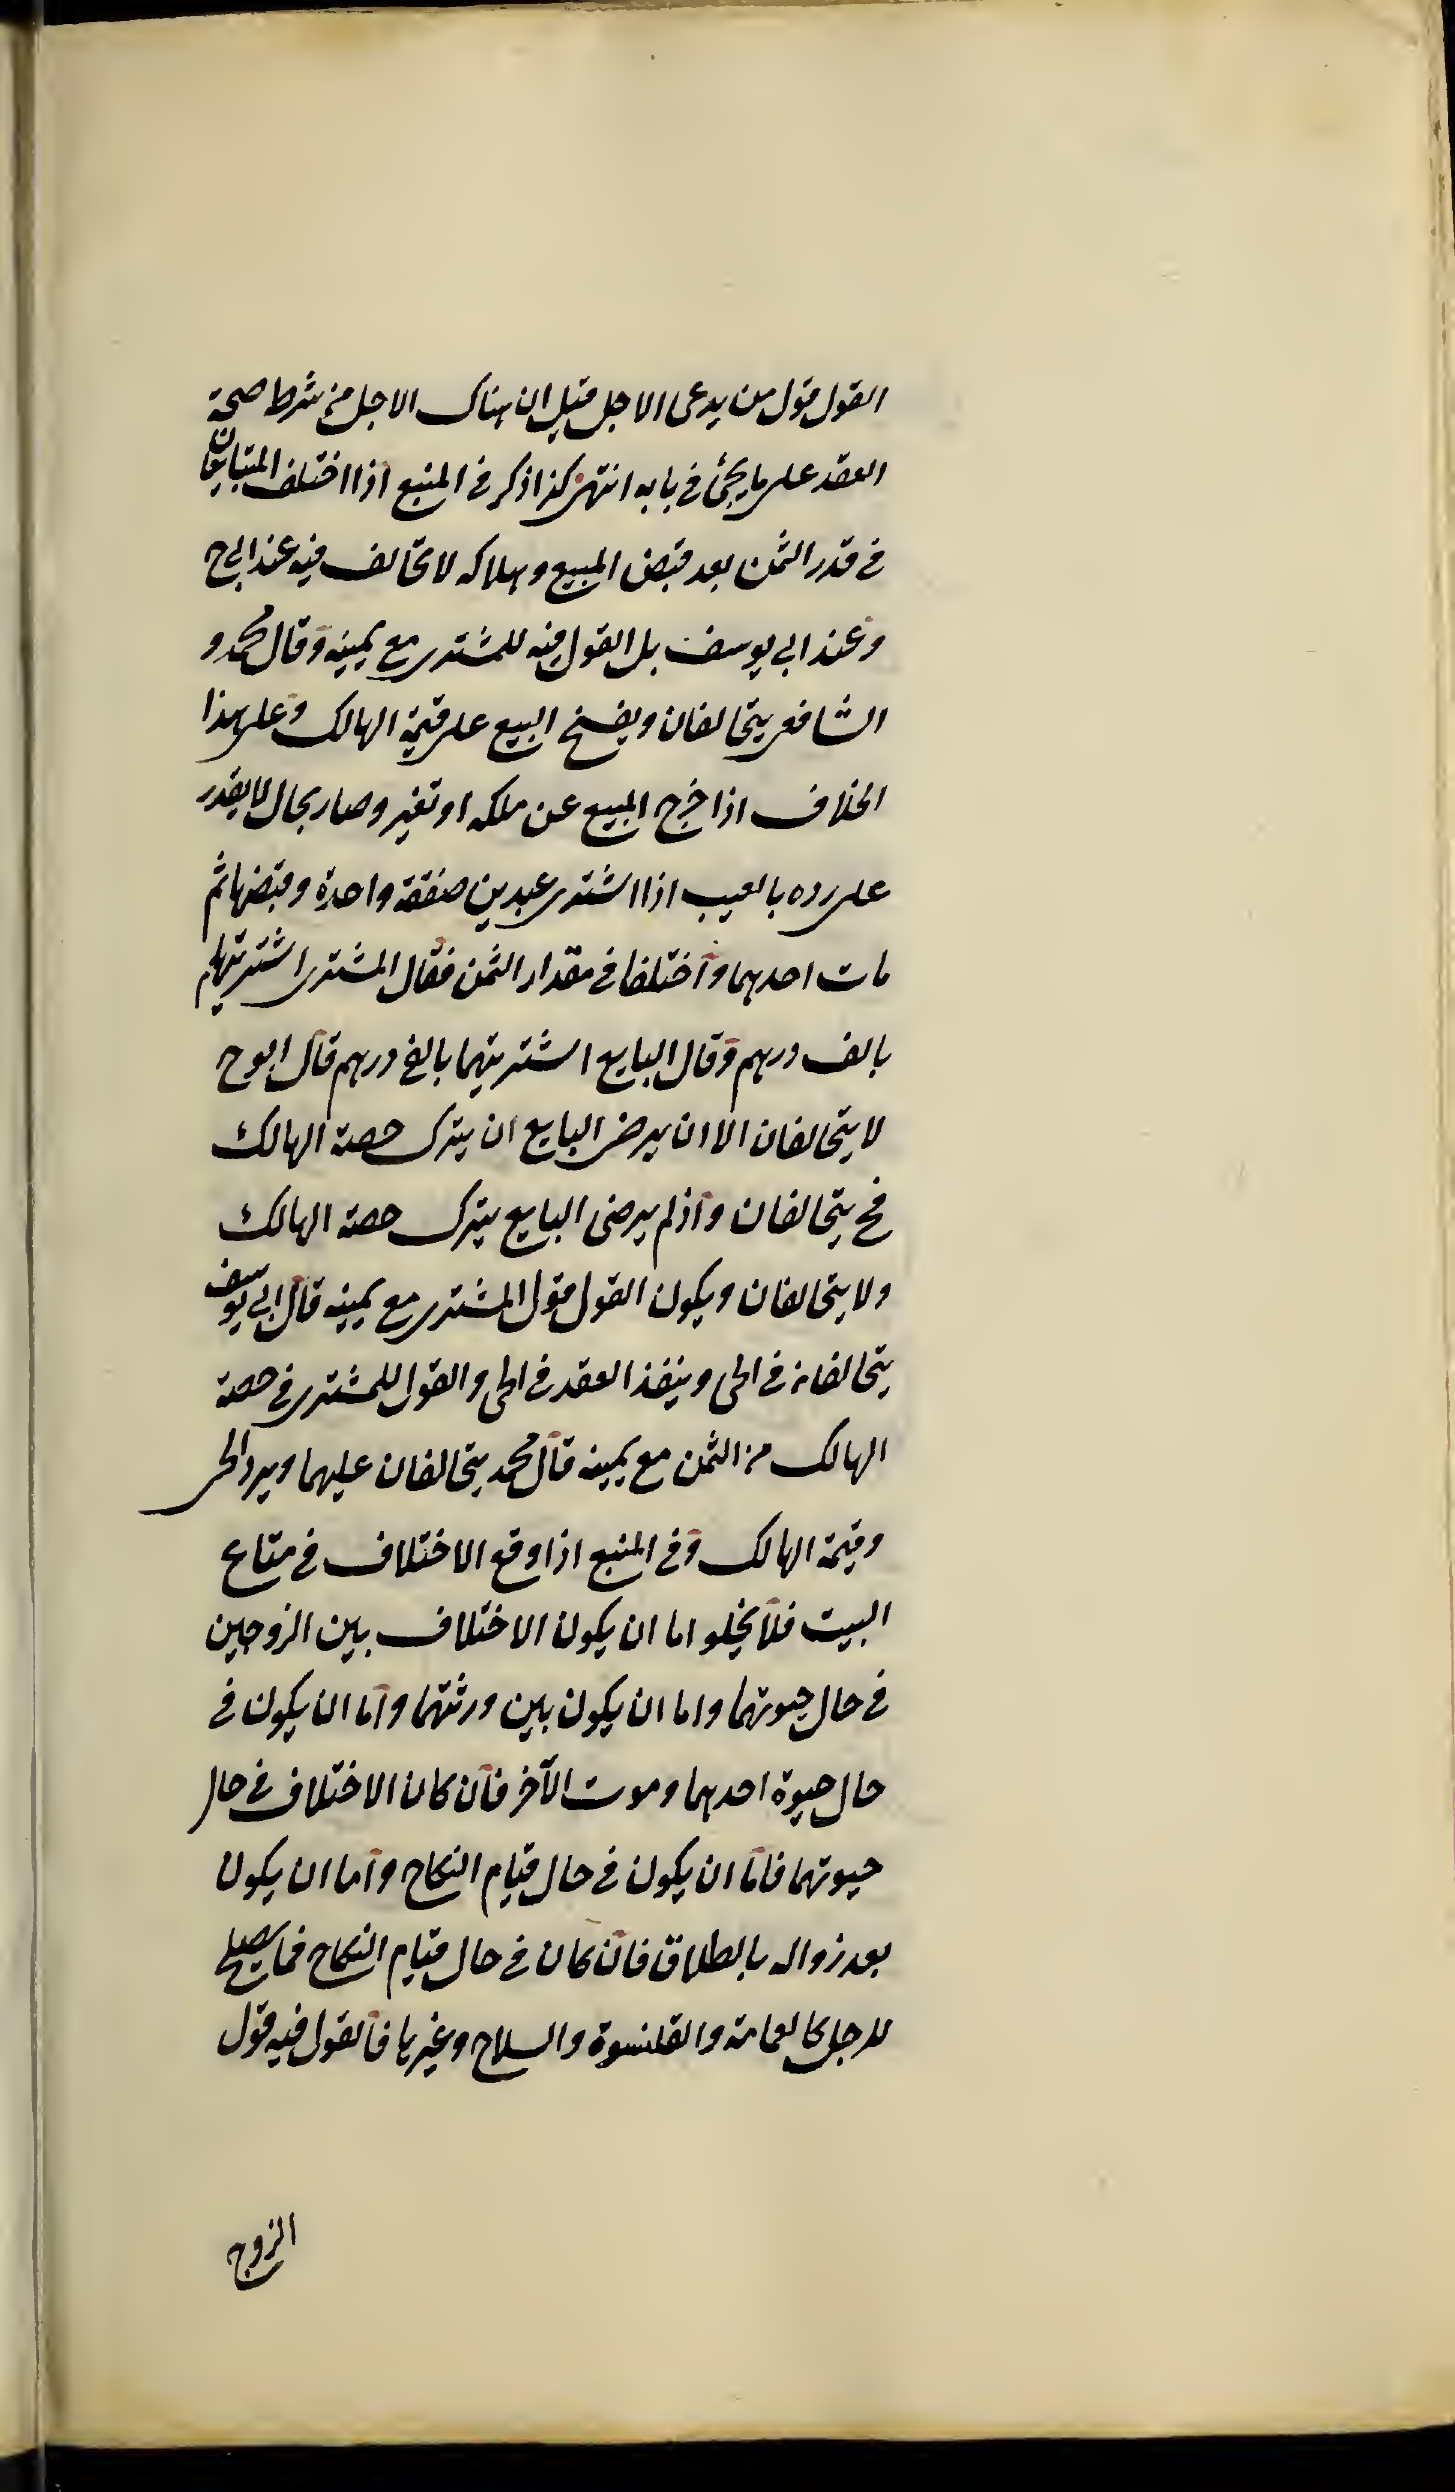 القول قول من يدعى الاجل قيل ان هناك الاجل من شرط صحة
العقد على ما يجئ فى بابه انتهى كذا ذكر فى المنبع اذا اختلف المتبايعان
فى قدر الثمن بعد قبض المبيع وهلاكه لا تحالف فيه عند ابى ح
وعند ابى يوسف بل القول فيه للمشترى مع يمينه وقال محمد و
الشافعى يتحالفان ويفسخ البيع على قيمة الهالك وعلى هذا
الخلاف اذا خرج المبيع عن ملكه او تغير وصار بحال لا يقدر
على رده بالعيب اذا اشترى عبدين صفقة واحدة وقبضهما ثم
مات احدهما واختلفا فى مقدار الثمن فقال المشترى اشتريتهما
بالف درهم وقال البايع اشتريتهما بالفى درهم قال ابو ح
لا يتحالفان الا ان يرضى البايع ان يترك حصة الهالك
فح يتحالفان واذ لم يرضى البايع يترك حصة الهالك
ولا يتحالفان ويكون القول قول المشترى مع يمينه قال ابى يوسف
يتحالفان فى الحى وينفذ العقد فى الحى والقول للمشترى فى حصة
الهالك من الثمن مع يمينه قال محمد يتحالفان عليهما ويرد الحى
وقيمة الهالك وفى المنبع اذا وقع الاختلاف فى متاع
البيت فلا يخلو اما ان يكون الاختلاف بين الزوجين
فى حال حيوتهما واما ان يكون بين ورثتهما واما ان يكون فى
حال حيوة احدهما وموت الآخر فان كان الاختلاف فى حال
حيوتهما فاما ان يكون فى حال قيام النكاح واما ان يكون
بعد زواله بالطلاق فان كان فى حال قيام النكاح فما يصلح
للرجل كالعمامة والقلنسوة والسلاح وغيرها فالقول فيه قول
الزوج